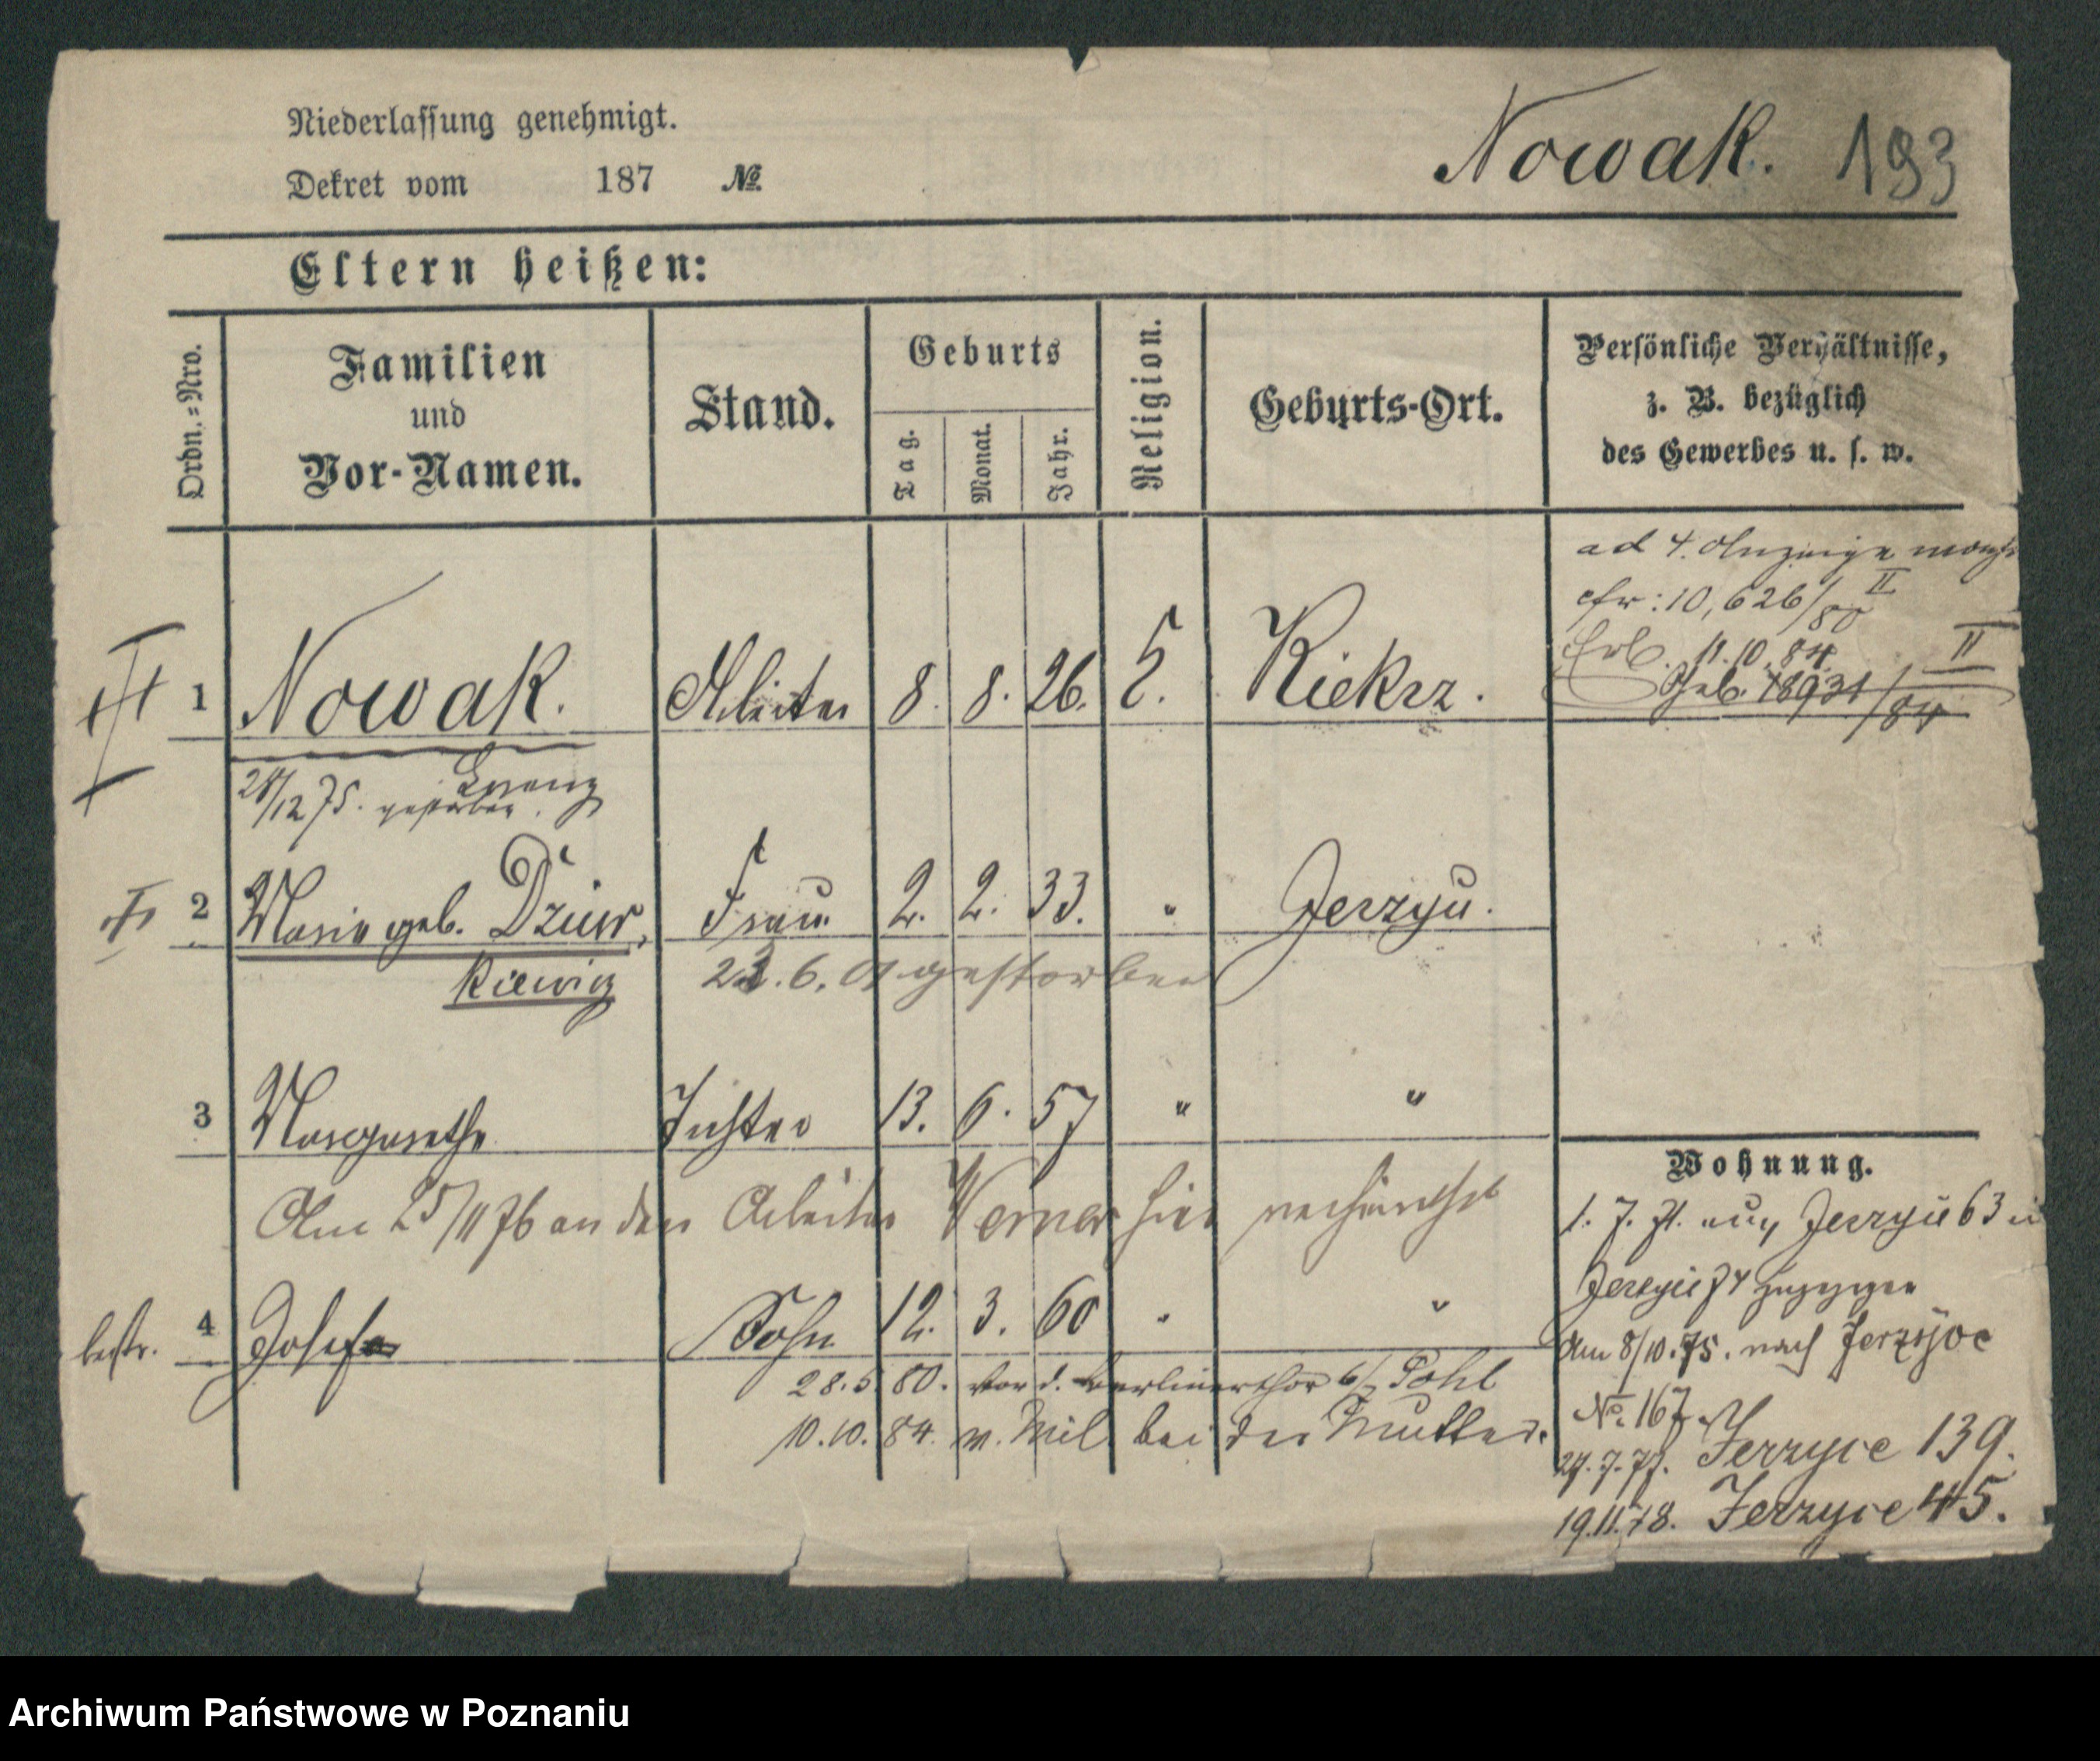 Niederlassung genehmigt.
Dekret vom 187 №
Nowak. 193
Eltern heißen:
Ordn.-Nro.
Familien
und
Vor-Namen.
Stand.
Geburts
Tag.
Monat.
Jahr.
Religion.
Geburts-Ort.
Persönliche Verhältnisse,
z. B. bezüglich
des Gewerbes u. s. w.
ad 4. Anzeige
cfr: 10,626/80 II
11.10.84. II
18931/84
1 Nowak. Arbeiter 8. 8. 26. Kiekrz.
24/12 75. gestorben.
2 Marie geb. Dziew, Frau 2. 2. 33. " Jerzyce.
kiewicz 6. gestorben
3 Margarethe Tochter 13. 6. 57 " "
Am 25/11 76 an den Arbeiter Werner hier verheirathet
4 Josef Sohn 12. 3. 60 " "
28.5.80. vor d. Berlinerthor b/ Pohl
10.10.84. v. Mil. bei der Mutter.
Wohnung.
1. 7. 71. aus Jerzyce 63 in
Jerzyce 74 gezogen
Am 8/10.75. nach Jerzyce
№ 167
27.7.77. Jerzyce 139.
19.11.78. Jerzyce 45.
Archiwum Państwowe w Poznaniu